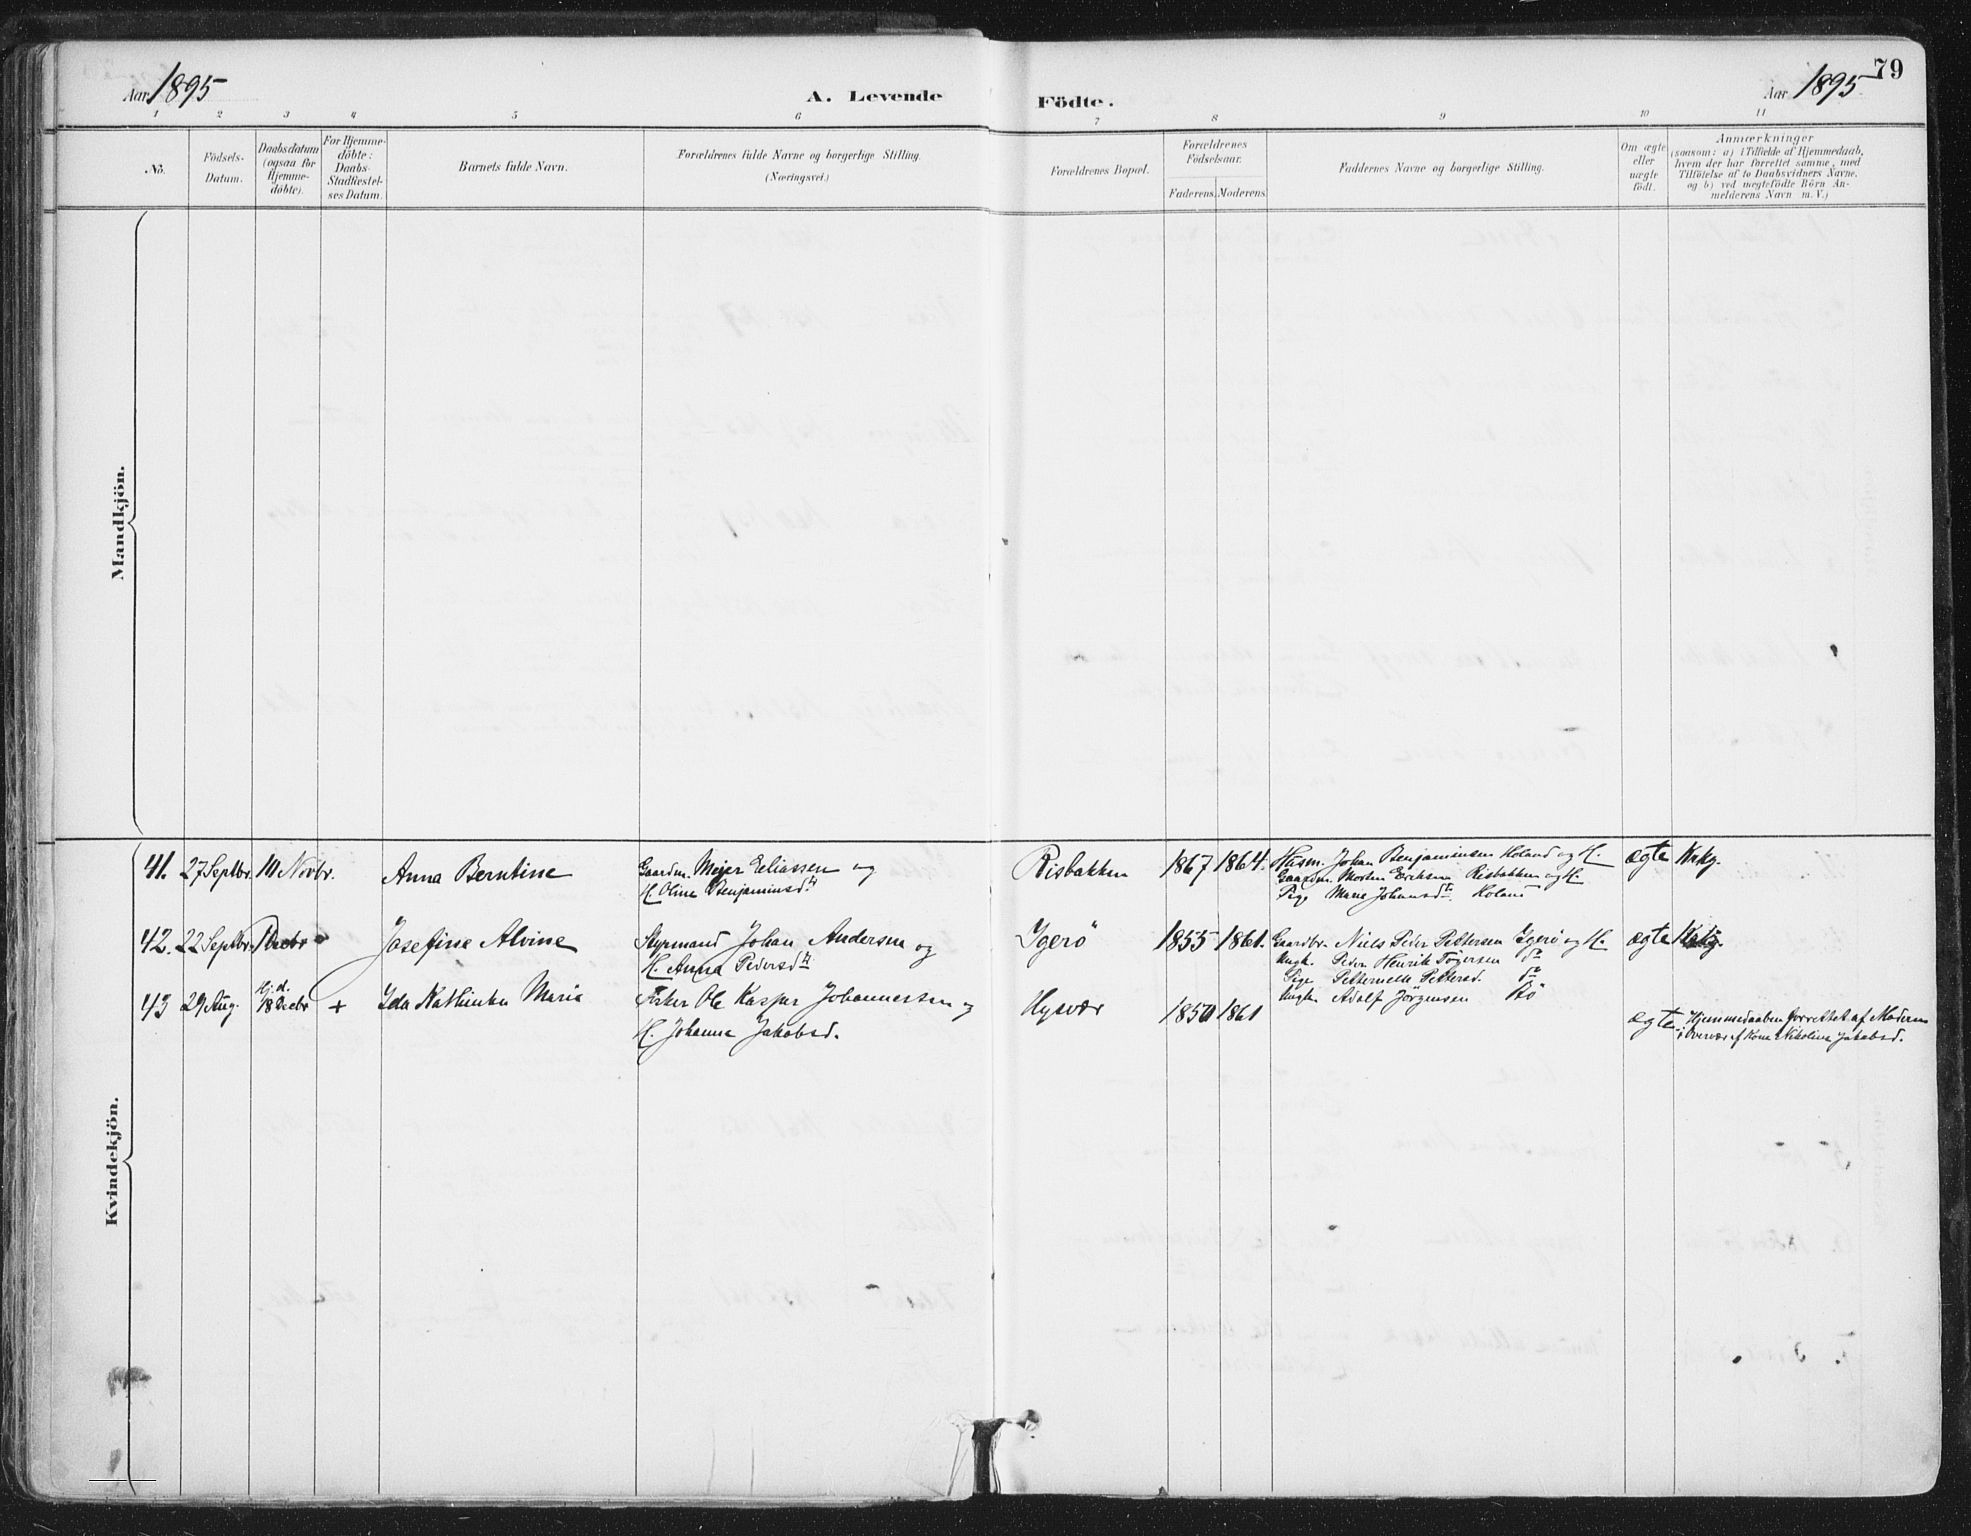 Aar 1895
A. Levende Födte.
Aar 1895
79
1 2 3 4 5 6 7 8 9 10 11
No.
Födsels-Datum.
Daabsdatum (ogsaa for Hjemme-döbte).
For Hjemme-döbte: Daabs-Stadfæstel-ses Datum.
Barnets fulde Navn.
Forældrenes fulde Navne og borgerlige Stilling. (Næringsvei.)
Forældrenes Bopæl.
Forældrenes Födselsaar.
Faderens. Moderens.
Faddernes Navne og borgerlige Stilling.
Om ægte eller uægte födt.
Anmærkninger
(saasom: a) i Tilfælde af Hjemmedaab,
hvem der har forrettet samme, med
Tilföielse af to Daabsvidners Navne,
og b) ved uægtefödte Börn An-
melderens Navn m. V.)
Mandkjön.
Kvindekjön.
41. 27 Septbr. 10 Novbr. Anna Berntine
Gaardm. Meyer Eeliassen og
H. Oline Benjaminsdtr
Risbakken 1867 1864.
Husm. Johan Benjaminsen Holand og H.
Gaardm. Morten Eriksen Risbakken og H.
Pige Marie Johansdtr. Holand
ægte Krkg.
42. 22 Septbr. 1 Decbr Josefine Alvine
Styrmand Johan Andersen og
H. Anna Pedersdtr
Ygerö 1855 1861.
Gaardbr. Niels Peder Pettersen Ygerö og H.
Ungk. Peder Henrik Tögersen do
Pige Petternelle Pettersd. do
Ungk. Adolf Jörgensen Rö
ægte Krkg.
43 29 Aug. Hj.d. 18 Decbr + Ida Kathinka Marie
Fisker Ole Kaspar Johannessen og
H. Johanna Jakobsd.
Hysvær 1850 1861
ægte Hjemmedaaben forrettet af Moderen
i Overvær af Kone Nikolina Jakobsd.